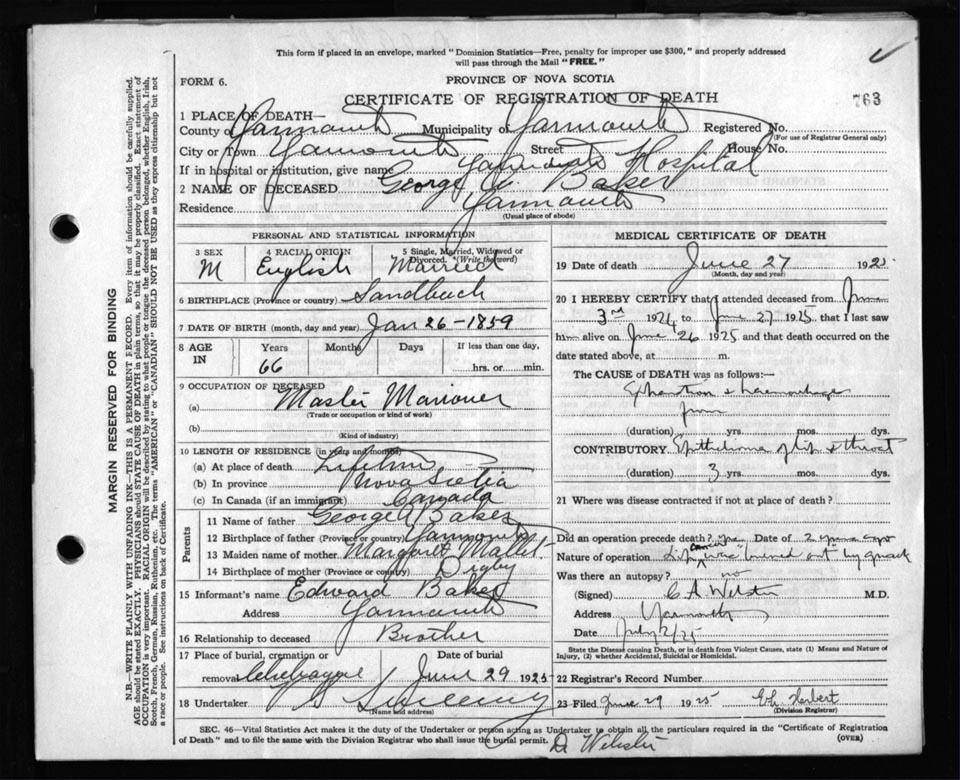 This form if placed in an envelope, marked "Dominion Statistics—Free, penalty for improper use $300," and properly addressed
will pass through the Mail "FREE."
FORM 6.
PROVINCE OF NOVA SCOTIA
CERTIFICATE OF REGISTRATION OF DEATH
763
1 PLACE OF DEATH—
County of Yarmouth Municipality of Yarmouth Registered No.
(For use of Registrar General only)
City or Town Yarmouth Street House No.
If in hospital or institution, give name Yarmouth Hospital
2 NAME OF DECEASED George W. Baker
Residence Yarmouth
(Usual place of abode)
PERSONAL AND STATISTICAL INFORMATION
3 SEX 4 RACIAL ORIGIN 5 Single, Married, Widowed or Divorced. (Write the word)
M English Married
6 BIRTHPLACE (Province or country) Sandbeach
7 DATE OF BIRTH (month, day and year) Jan 26-1859
8 AGE IN Years Months Days If less than one day,
66 hrs. or min.
9 OCCUPATION OF DECEASED
(a) Master Mariner
(Trade or occupation or kind of work)
(b)
(Kind of industry)
10 LENGTH OF RESIDENCE (in years and months)
(a) At place of death Lifetime
(b) In province Nova Scotia
(c) In Canada (if an immigrant) Canada
Parents
11 Name of father George Baker
12 Birthplace of father (Province or country) Yarmouth
13 Maiden name of mother Margaret Mallet
14 Birthplace of mother (Province or country) Digby
15 Informant's name Edward Baker
Address Yarmouth
16 Relationship to deceased Brother
17 Place of burial, cremation or Date of burial
removal Chebogue June 29 1925
18 Undertaker V S Sweeny
(Name and address)
MEDICAL CERTIFICATE OF DEATH
19 Date of death June 27 1925
(Month, day and year)
20 I HEREBY CERTIFY that I attended deceased from June
3rd 1924 to June 27 1925 that I last saw
him alive on June 26 1925 and that death occurred on the
date stated above, at m.
The CAUSE OF DEATH was as follows:—
Exhaustion & haemorrhage
from
(duration) yrs. mos. dys.
CONTRIBUTORY Epithelioma of lip & throat
(duration) 3 yrs. mos. dys.
21 Where was disease contracted if not at place of death?
Did an operation precede death? yes Date of 2 years ago
Nature of operation Lip cancer was burned out by quack
Was there an autopsy? no
(Signed) C A Webster M.D.
Address Yarmouth
Date July 2/25
State the Disease causing Death, or in death from Violent Causes, state (1) Means and Nature of
Injury, (2) whether Accidental, Suicidal or Homicidal.
22 Registrar's Record Number
23 Filed June 29 1925 Herbert
(Division Registrar)
SEC. 46—Vital Statistics Act makes it the duty of the Undertaker or person acting as Undertaker to obtain all the particulars required in the "Certificate of Registration
of Death" and to file the same with the Division Registrar who shall issue the burial permit. (OVER)
D Webster
MARGIN RESERVED FOR BINDING
N.B.—WRITE PLAINLY WITH UNFADING INK—THIS IS A PERMANENT RECORD. Every item of information should be carefully supplied.
AGE should be stated EXACTLY. PHYSICIANS should STATE CAUSE OF DEATH in plain terms, so that it may be properly classified. Exact statement of
OCCUPATION is very important. RACIAL ORIGIN will be described by stating to what people or tongue the deceased person belonged, whether English, Irish,
Scotch, French, German, Russian, Ruthenian, etc. The terms "AMERICAN" or "CANADIAN" SHOULD NOT BE USED as they express citizenship but not
a race or people. See instructions on back of Certificate.